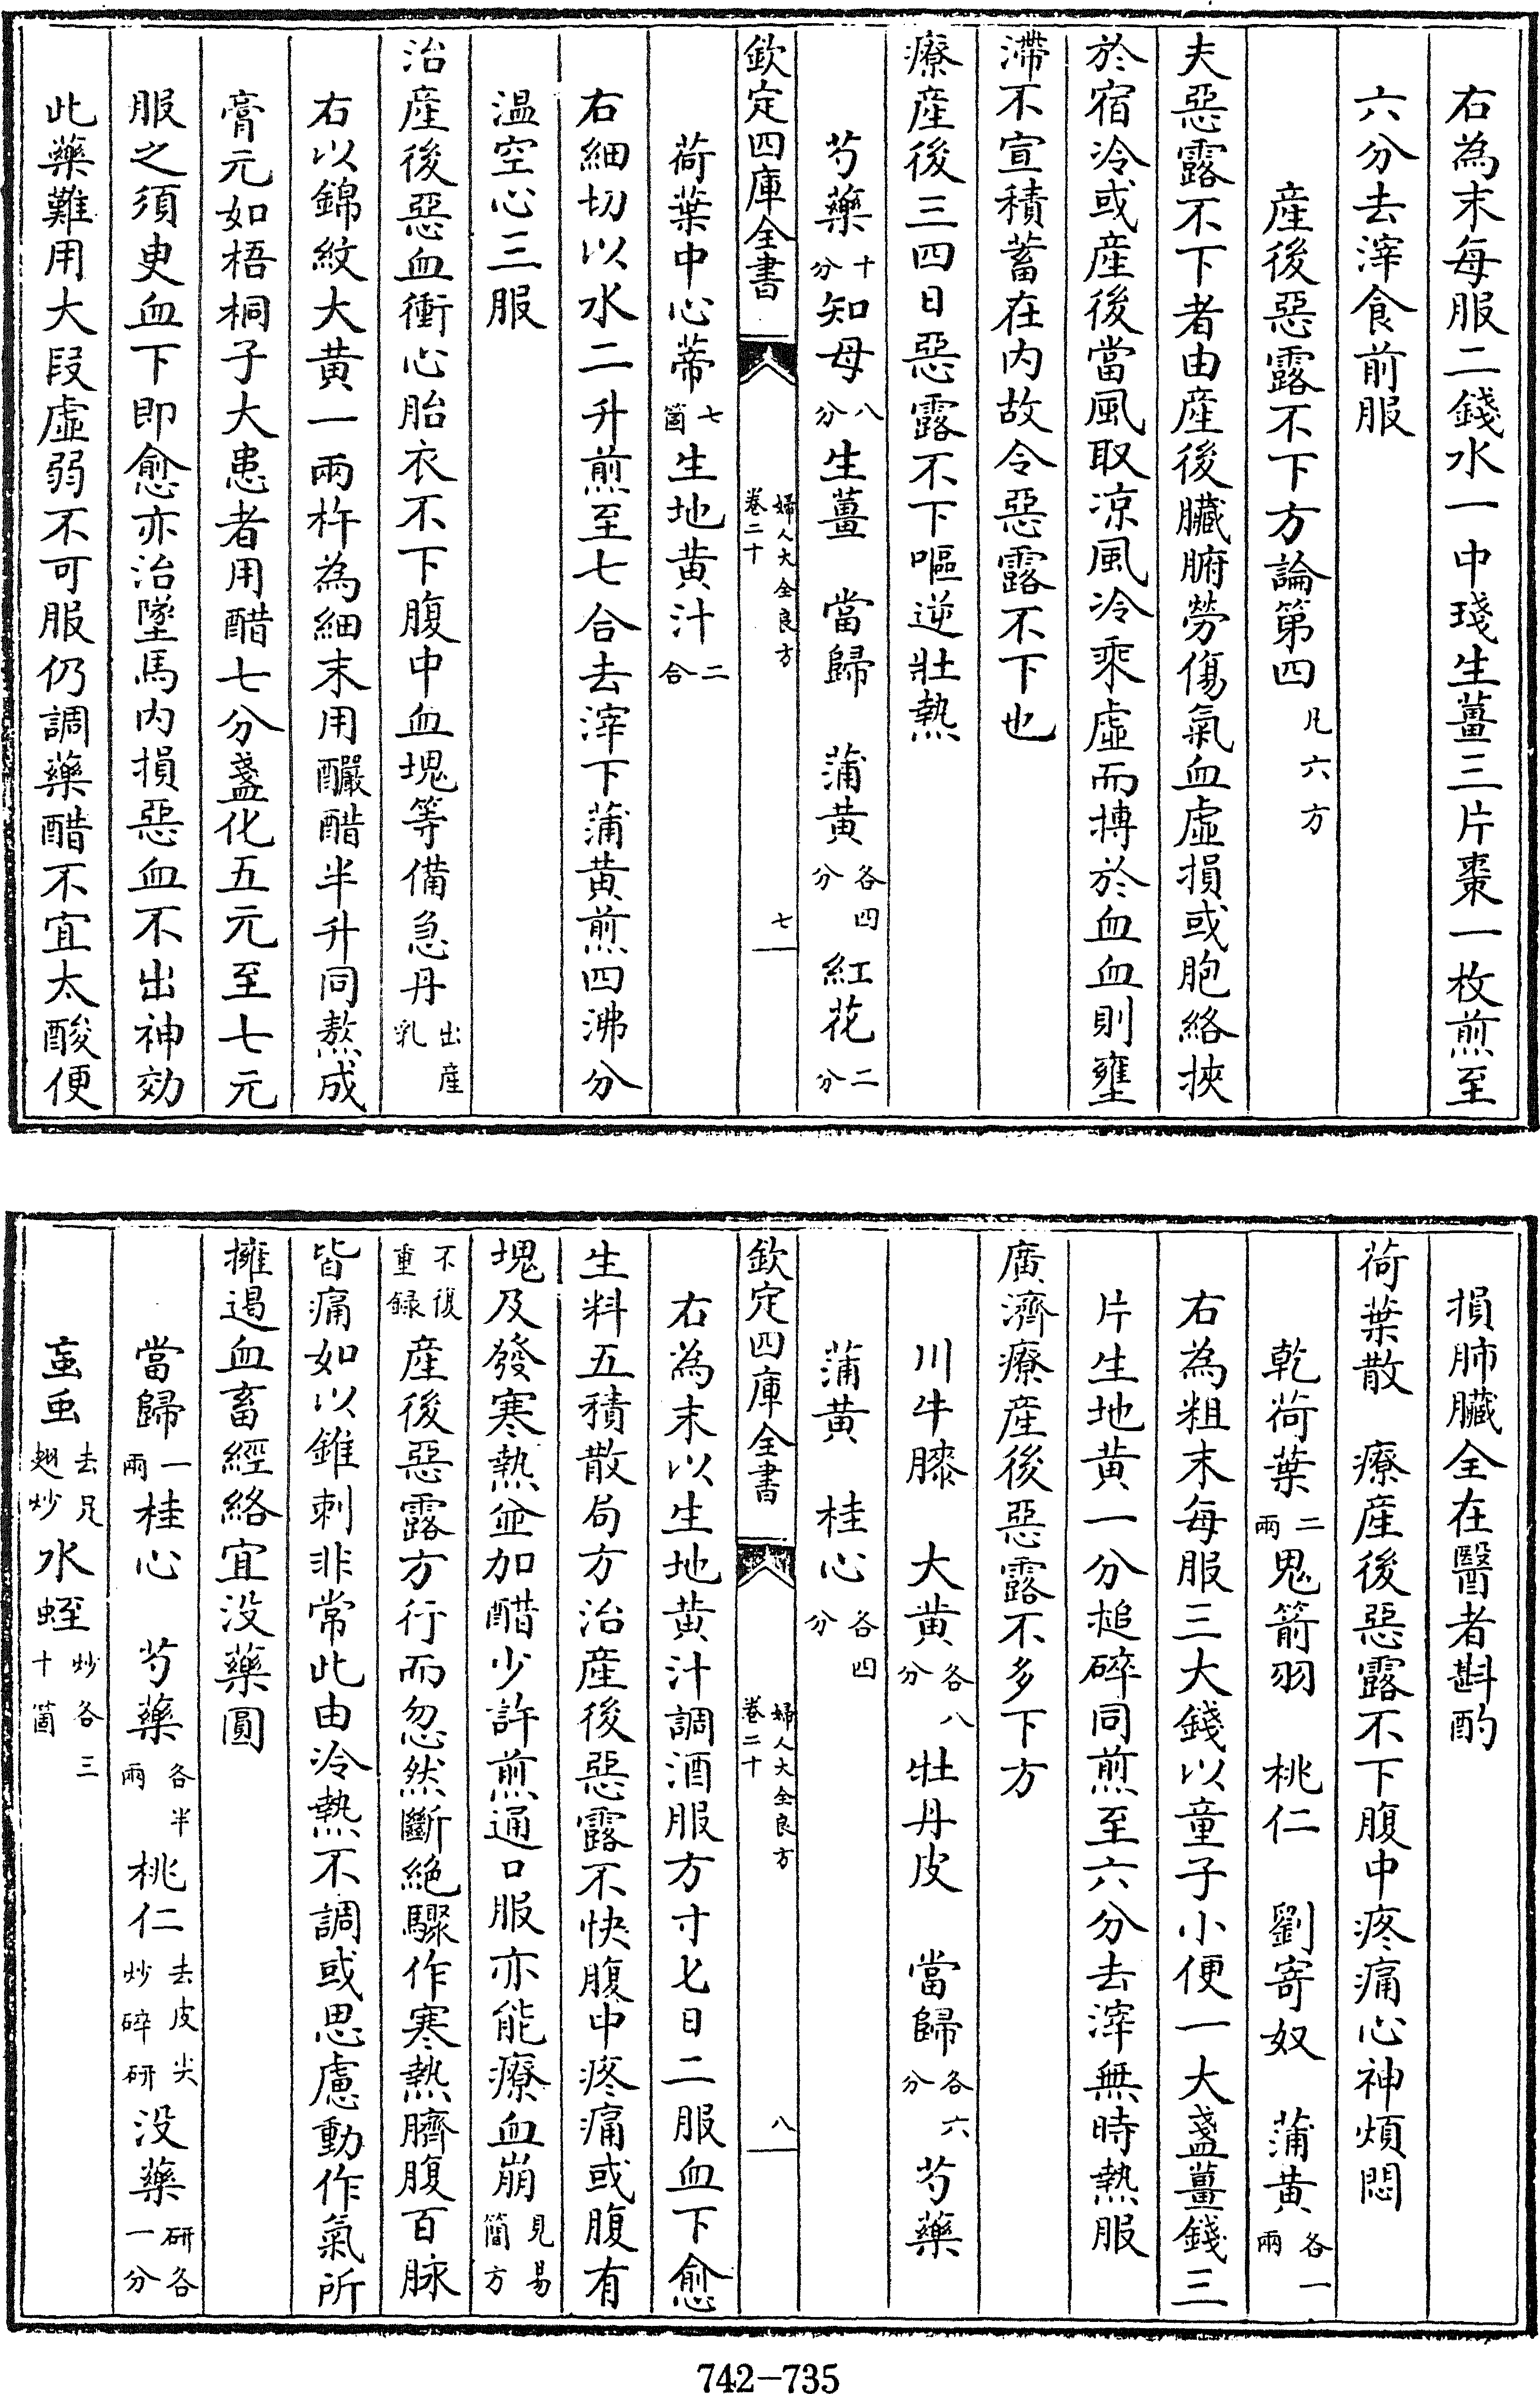 右為末每服二錢水一中琖生薑三片棗一枚煎至
六分去滓食前服
產後惡露不下方論第四凡六方
夫惡露不下者由產後臟腑勞傷氣血虛損或胞絡挾
於宿冷或產後當風取涼風冷乘虛而搏於血血則壅
滯不宣積蓄在內故令惡露不下也
療產後三四日惡露不下嘔逆壯熱
芍藥十分知母八分生薑　當歸　蒲黃各四分紅花二分
欽定四庫全書　婦人大全良方卷二十　七
荷葉中心蒂七箇生地黃汁二合
右細切以水二升煎至七合去滓下蒲黃煎四沸分
溫空心三服
治產後惡血衝心胎衣不下腹中血塊等備急丹出產乳
右以錦紋大黃一兩杵為細末用釅醋半升同熬成
膏元如梧桐子大患者用醋七分盞化五元至七元
服之須臾血下即愈亦治墜馬內損惡血不出神効
此藥難用大段虛弱不可服仍調藥醋不宜太酸便
損肺臟全在醫者斟酌
荷葉散　療產後惡露不下腹中疼痛心神煩悶
乾荷葉二兩鬼箭羽　桃仁　劉寄奴　蒲黃各一兩
右為粗末每服三大錢以童子小便一大盞薑錢三
片生地黃一分槌碎同煎至六分去滓無時熱服
廣濟療產後惡露不多下方
川牛膝　大黃各八分牡丹皮　當歸各六分芍藥
蒲黃　桂心各四分
欽定四庫全書　婦人大全良方卷二十　八
右為末以生地黃汁調酒服方寸匕日二服血下愈
生料五積散局方治產後惡露不快腹中疼痛或腹有
塊及發寒熱並加醋少許煎通口服亦能療血崩見易簡方
不復重録產後惡露方行而忽然斷絕驟作寒熱臍腹百脉
皆痛如以錐刺非常此由冷熱不調或思慮動作氣所
擁遏血畜經絡宜沒藥圓
當歸一兩桂心　芍藥各半兩桃仁去皮尖炒碎研沒藥研各一分
䖟蟲去足翅炒水蛭炒各三十箇
742-735